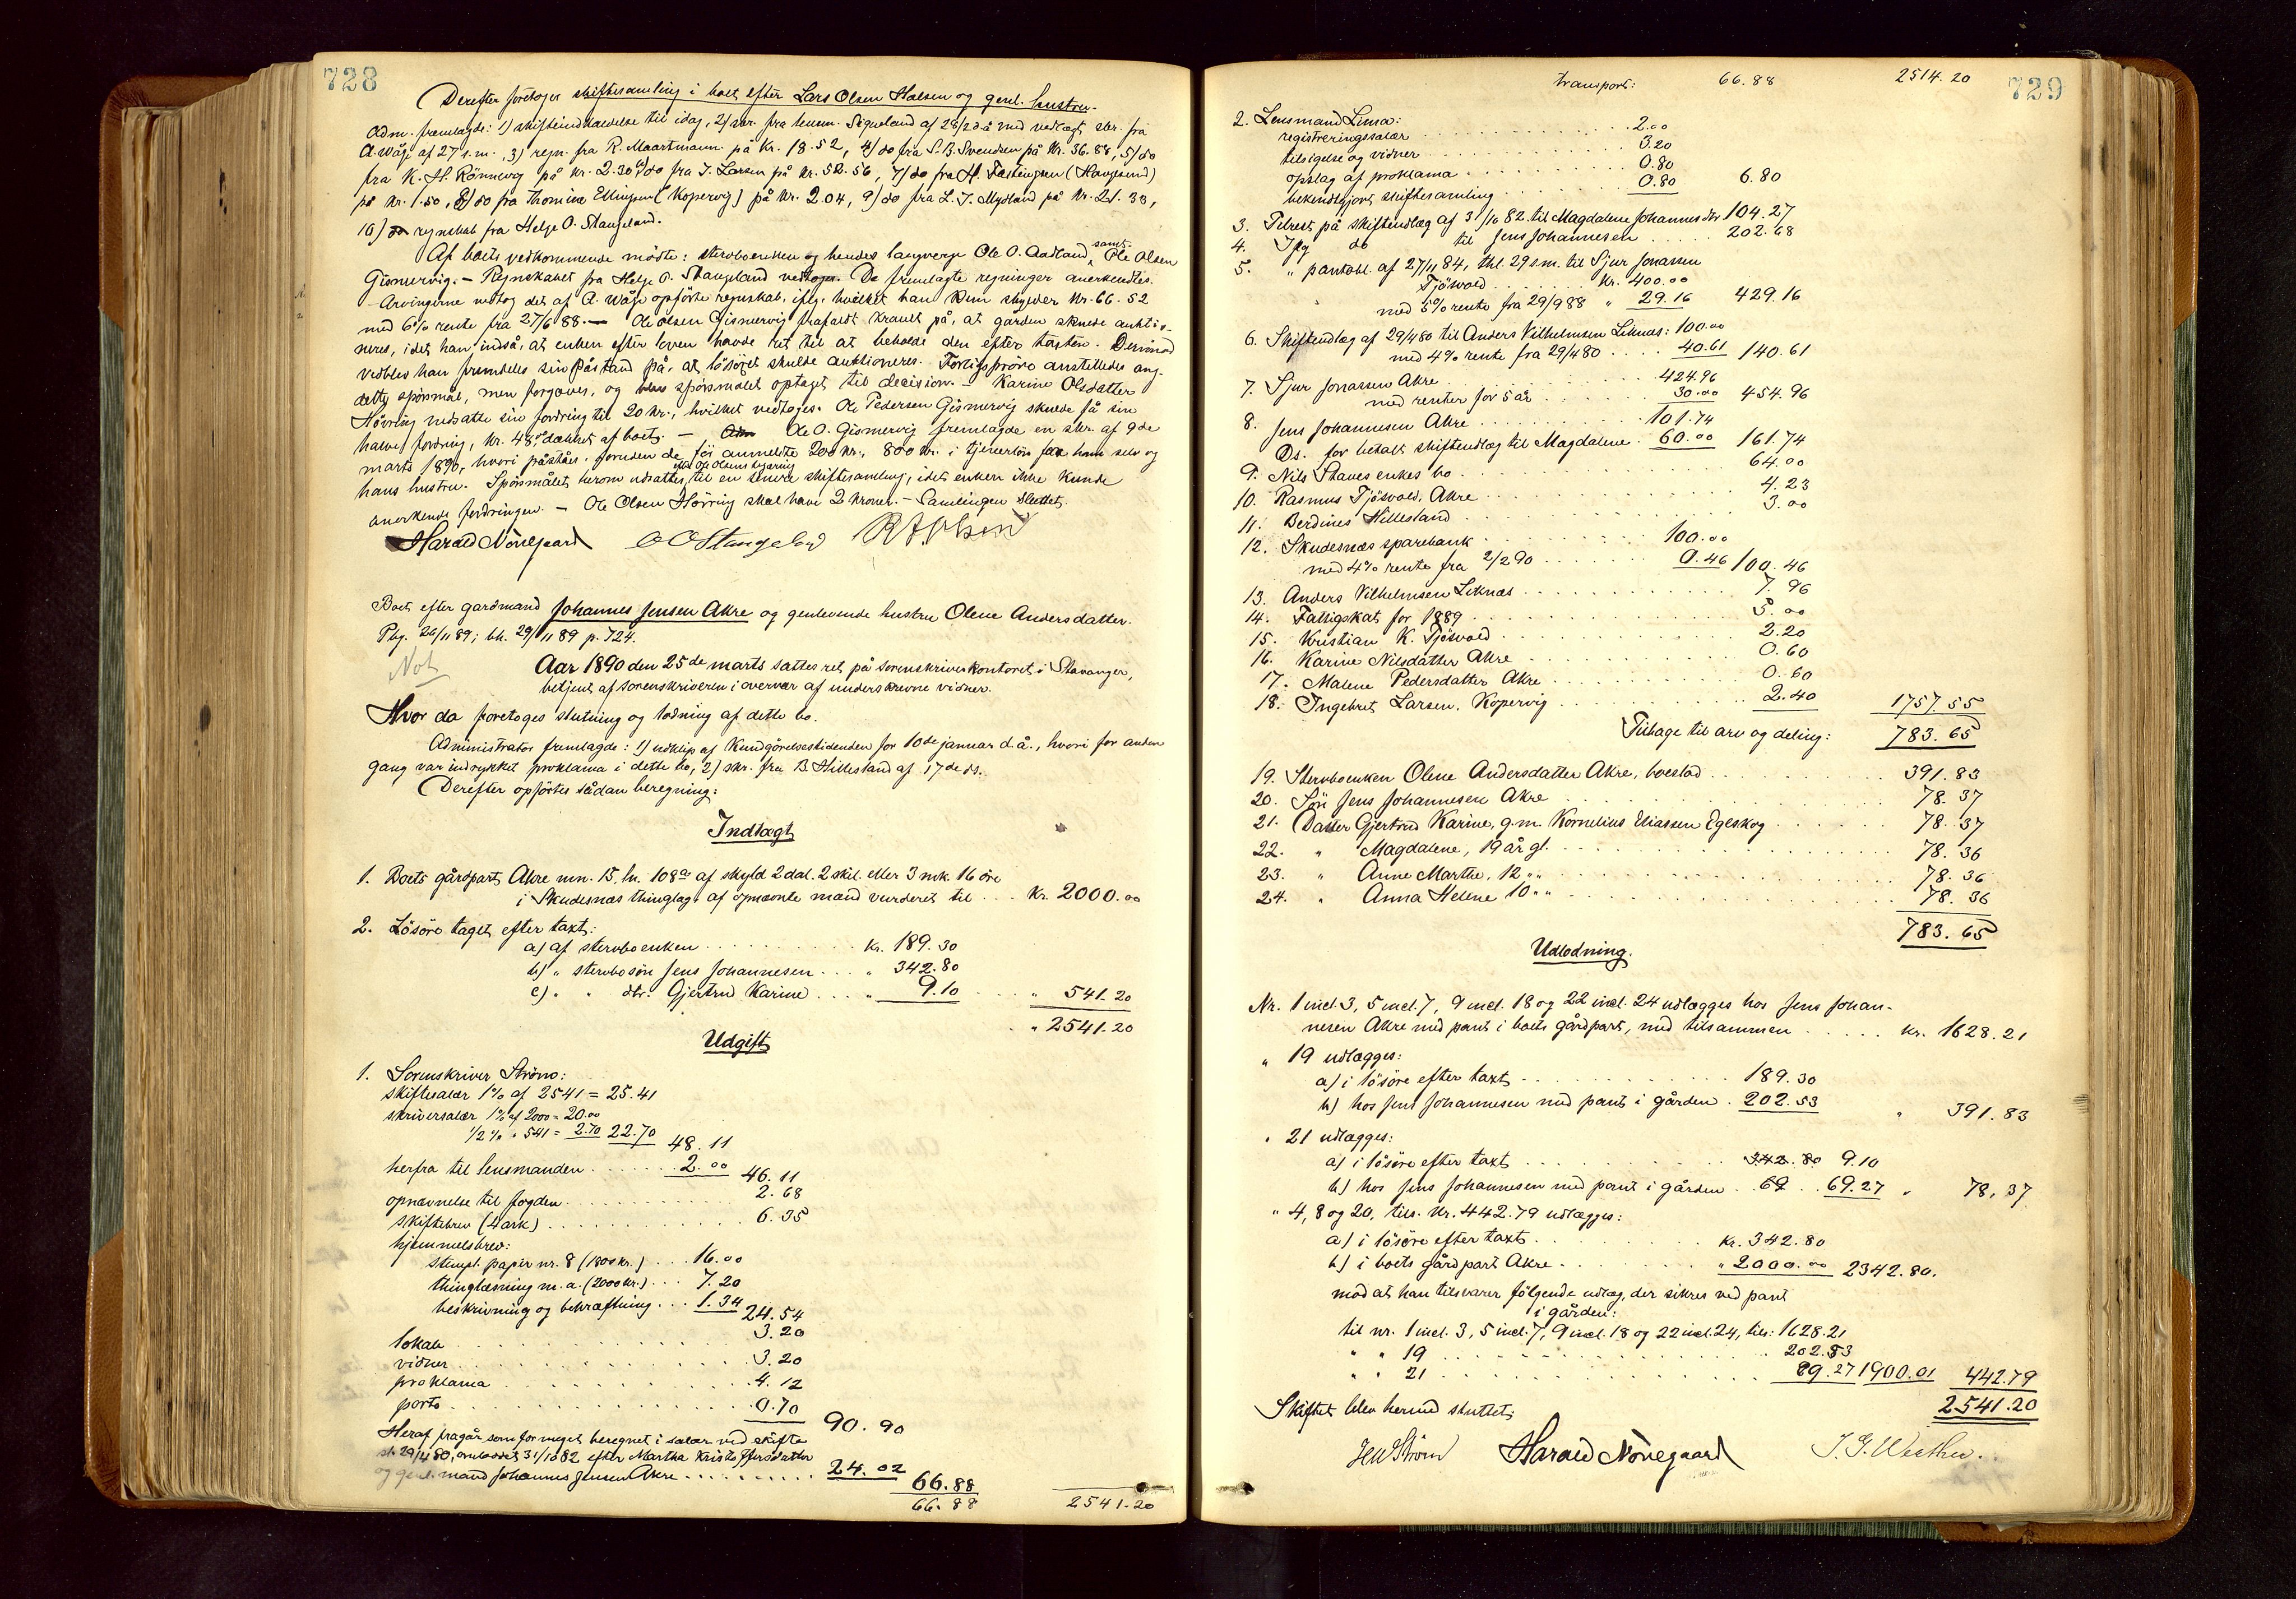 728
Derefter foretoges skiftesamling i boet efter Lars Olsen Halsen og genl. hustru.
Adm. fremlagde: 1) skifteindkaldelse til idag, 2) skr. fra lensm. Sigveland af 28/2 d.å. med vedlagt skr. fra
A. Våge af 27 s.m., 3) regn. fra R. Maartmann på Kr. 18.52, 4) do fra S. B. Svendsen på Kr. 36.88, 5) do
fra K. H. Rönnevig på kr. 2.30, 6) do fra J. Larsen på kr. 52.56, 7) do fra H. Fastingsen (Haugesund)
på kr. 1.50, 8) do fra Thomine Ellingsen (Kopervig) på kr. 2.04, 9) do fra L. J. Mydland på kr. 21.33,
10) regnskab fra Helge O. Stangeland.
Af boets vedkommende mödte: stervboenken og hendes laugverge Ole O. Aadland, samt Ole Olsen
Gismervig. – Regnskabet fra Helge O. Stangeland vedtoges. De fremlagte regninger anerkendtes.
– Arvingerne vedtog det af A. Våge opförte regnskab, iflg. hvilket han kun skylder kr. 66.52
med 6% rente fra 27/6 88. – Ole Olsen Gismervig frafaldt kravet på, at gården skulde auktio-
neres, idet han indså, at enken efter loven havde ret til at beholde den efter taksten. Derimod
vedblev han fremdeles sin påstand på, at lösöret skulde auktioneres. Forligspröve anstilledes ang.
dette spörsmål, men forgjæves, og spörsmålet optaget til decision. – Karine Olsdatter
Hövring nedsatte sin fordring til 20 kr., hvilket vedtoges. Ole Pedersen Gismervig skulde få sin
halve fordring, kr. 48, dækket af boet. – Ole O. Gismervig fremlagde en skr. af 9de
marts 1890, hvori påståes, foruden de för anmeldte 200 kr., 800 kr. i tjenerlön for ham selv og
hans hustru. Spörsmålet herom udsattes efter Ole Olsens begjæring til en senere skiftesamling, idet enken ikke kunde
anerkende fordringen. – Ole Olsen Hövring skal have 2 kroner. – Samlingen sluttet.
Harald Nörregaard O O Stangeland
Boet efter gardmand Johannes Jensen Akre og genlevende hustru Olene Andersdatter.
Pbg. 26/11 89; bh. 29/11 89 p. 724.
Not
Aar 1890 den 25de marts sattes ret på sorenskriverkontoret i Stavanger,
betjent af sorenskriveren i overvær af underskrevne vidner.
Hvor da foretoges slutning og lodning af dette bo.
Administrator fremlagde: 1) udklip af Kundgörelsestidenden for 10de januar d.å., hvori for anden
gang var indrykket proklama i dette bo, 2) skr. fra B. Hillesland af 17de ds.
Derefter opförtes sådan beregning:
Indtægt
1. Boets gårdpart Akre mn. 15, ln. 108a af skyld 2 dal. 2 skil. eller 3 mk. 16 öre
i Skudesnæs thinglag, af opnævnte mænd vurderet til ... Kr. 2000.00
2. Lösöre taget efter taxt:
a) af stervboenken ... Kr. 189.30
b) " stervbosön Jens Johannesen ... " 342.80
c) " " dtr. Gjertrud Karine ... " 9.10 ... " 541.20
" 2541.20
Udgift
1. Sorenskriver Ström:
skiftesalær 1% af 2541 = 25.41
skriversalær 1% af 2000 = 20.00
1/2% " 541 = 2.70 22.70 48.11
herfra til lensmanden ... 2.00 46.11
opnævnelse til fogden ... 2.68
skiftebrev (4 ark) ... 6.35
hjemmelsbrev:
stempl. papir nr. 8 (1800 kr.) ... 16.00
thinglæsning m.a. (2000 kr.) ... 7.20
beskrivning og bekræftning ... 1.34 24.54
lokale ... 3.20
vidner ... 3.20
proklama ... 4.12
porto ... 0.70 90.90
Heraf fragår som for meget beregnet i salær ved skifte
sl. 29/4 80, omlodet 31/10 82 efter Martha Kristoffersdatter
og genl. mand Johannes Jensen Akre ... 24.02 66.88
66.88 2541.20
729
transport: 66.88 2514.20
2. Lensmand Lima:
registreringssalær ... 2.00
tilsigelse og vidner ... 3.20
opslag af proklama ... 0.80
bekendtgjort skiftesamling ... 0.80 6.80
3. Tilrest på skifteudlæg af 31/10 82 til Magdalene Johannesdtr 104.27
4. Iflg do til Jens Johannesen ... 202.68
5. " pantobl. af 27/11 84, thl. 29 s.m. til Sjur Jonassen
Tjösvold ... Kr. 400.00
med 5% rente fra 29/9 88 " 29.16 429.16
6. Skifteudlæg af 29/4 80 til Anders Vilhelmsen Liknæs: 100.00
med 4% rente fra 29/4 80 ... 40.61 140.61
7. Sjur Jonassen Akre ... 424.96
med renter for 5 år ... 30.00 454.96
8. Jens Johannesen Akre ... 101.74
Ds. for betalt skifteudlæg til Magdalene . 60.00 161.74
9. Nils Staves enkes bo ... 64.00
10. Rasmus Tjösvold, Akre ... 4.23
11. Berdines Hillesland ... 3.00
12. Skudesnæs sparebank ... 100.00
med 4% rente fra 2/2 90 ... 0.46 100.46
13. Anders Vilhelmsen Liknæs ... 7.96
14. Fattigskat for 1889 ... 5.00
15. Kristian K. Tjösvold ... 2.20
16. Karine Nilsdatter Akre ... 0.60
17. Malene Pedersdatter Akre ... 0.60
18. Ingebret Larsen, Kopervig ... 2.40 1757.55
Tilbage til arv og deling: 783.65
19. Stervboenken Olene Andersdatter Akre, boeslod ... 391.83
20. Sön Jens Johannesen Akre ... 78.37
21. Datter Gjertrud Karine, g.m. Kornelius Eliassen Egeskog ... 78.37
22. " Magdalene, 19 år gl. ... 78.36
23. " Anne Marthe, 12 " " ... 78.36
24. " Anna Helene 10 " " ... 78.36
783.65
Udlodning.
Nr. 1 incl. 3, 5 incl. 7, 9 incl. 18 og 22 incl. 24 udlægges hos Jens Johan-
nesen Akre med pant i boets gårdpart, med tilsammen ... kr. 1628.21
" 19 udlægges:
a) i lösöre efter taxt ... 189.30
b) hos Jens Johannesen med pant i gården . 202.53 " 391.83
" 21 udlægges:
a) i lösöre efter taxt ... 342.80 9.10
b) hos Jens Johannesen med pant i gården . 69 . 69.27 " 78.37
" 4, 8 og 20, tils. kr. 442.79 udlægges:
a) i lösöre efter taxt ... Kr. 342.80
b) i boets gårdpart Akre ... " 2000.00 2342.80.
mod at han tilsvarer fölgende udlæg, der sikres ved pant
i gården:
til nr. 1 incl. 3, 5 incl. 7, 9 incl. 18 og 22 incl. 24, tils: 1628.21
" " 19 ... 202.53
" " 21 ... 69.27 1900.01 442.79
Skiftet blev hermed sluttet. 2541.20
Ström Harald Nörregaard